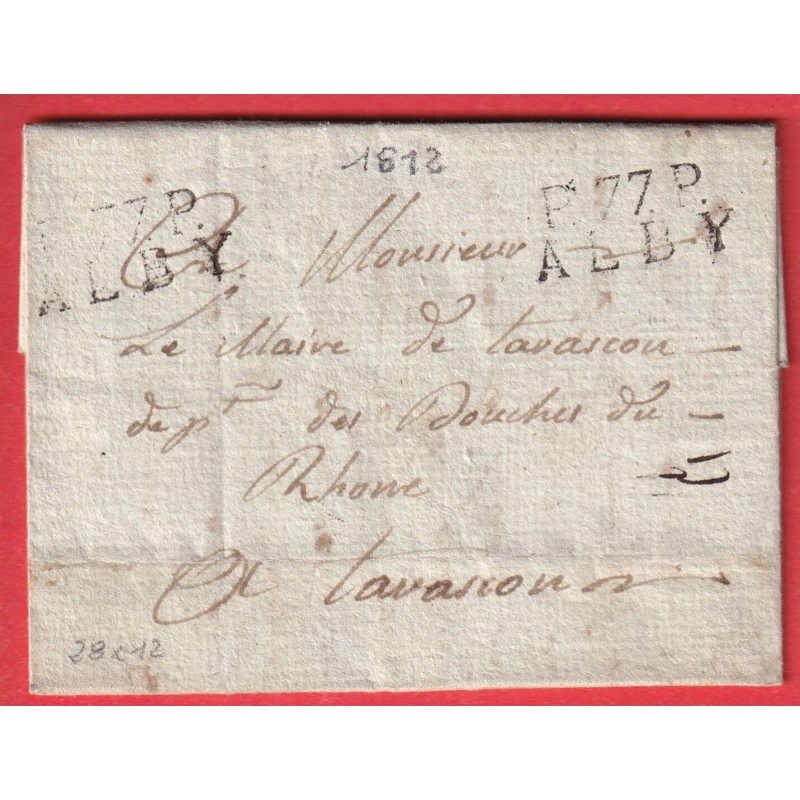 1812
77 P.
ALBY.
P. 77. P.
ALBY
A Monsieur
Le Maire de tarascon
de pt. des Bouches du
Rhone
A tarascon
28 x 12